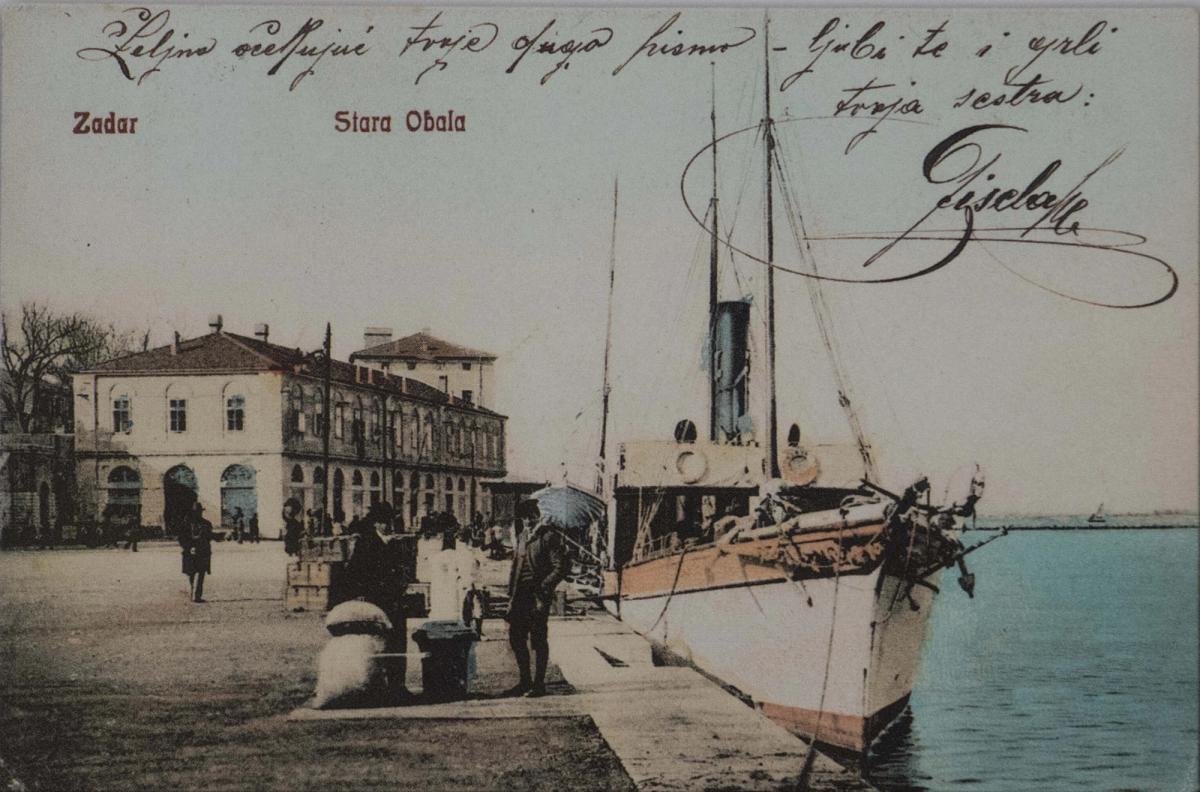 Željno očekujuć tvoje dugo pismo – ljubi te i grli
tvoja sestra:
Zadar Stara Obala
Gisela